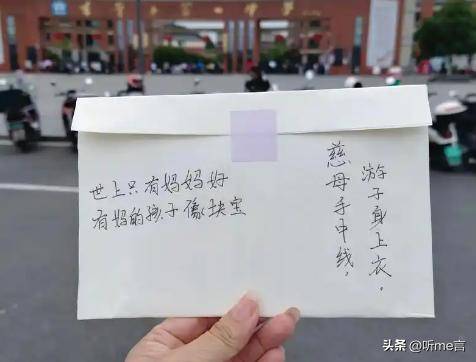 世上只有妈妈好
有妈的孩子像块宝
慈母手中线，
游子身上衣。
头条 @听me言